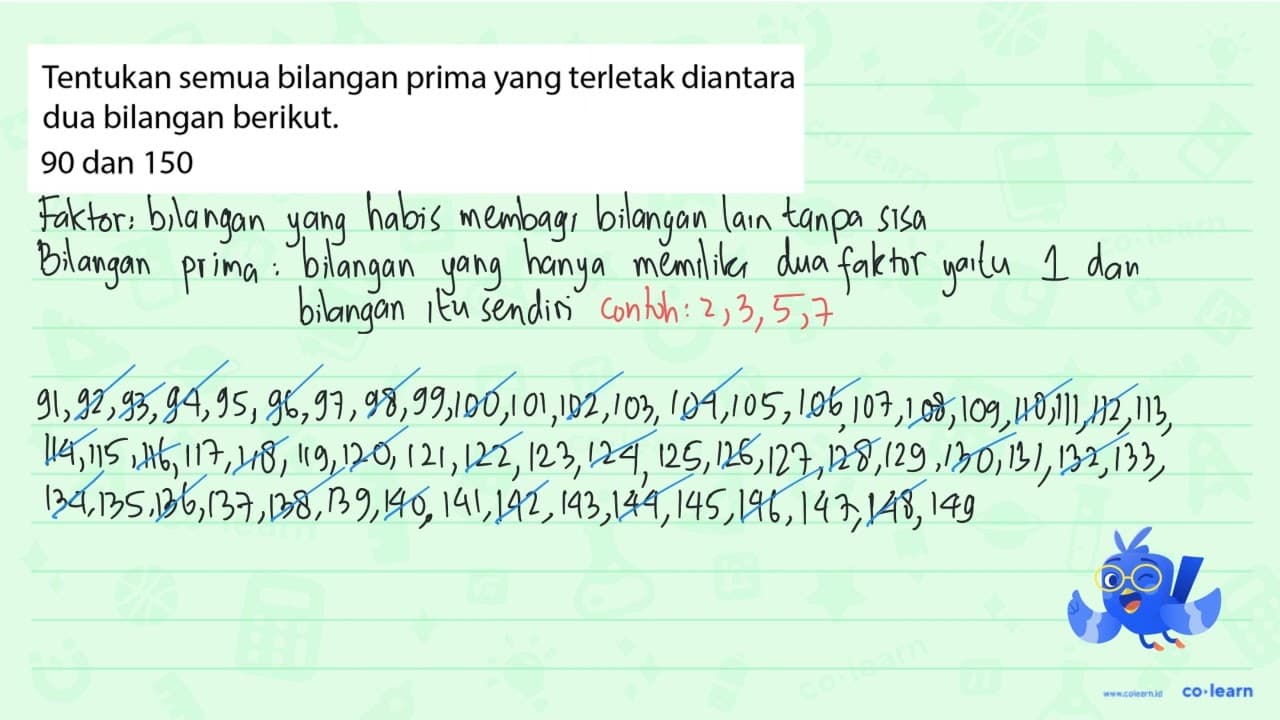 Tentukan semua bilangan prima yang terletak diantara
dua bilangan berikut.
90 dan 150
Faktor: bilangan yang habis membagi bilangan lain tanpa sisa
Bilangan prima: bilangan yang hanya memiliki dua faktor yaitu 1 dan
bilangan itu sendiri contoh: 2, 3, 5, 7
91, 92, 93, 94, 95, 96, 97, 98, 99, 100, 101, 102, 103, 104, 105, 106, 107, 108, 109, 110, 111, 112, 113,
114, 115, 116, 117, 118, 119, 120, 121, 122, 123, 124, 125, 126, 127, 128, 129, 130, 131, 132, 133,
134, 135, 136, 137, 138, 139, 140, 141, 142, 143, 144, 145, 146, 147, 148, 149
www.colearn.id co·learn